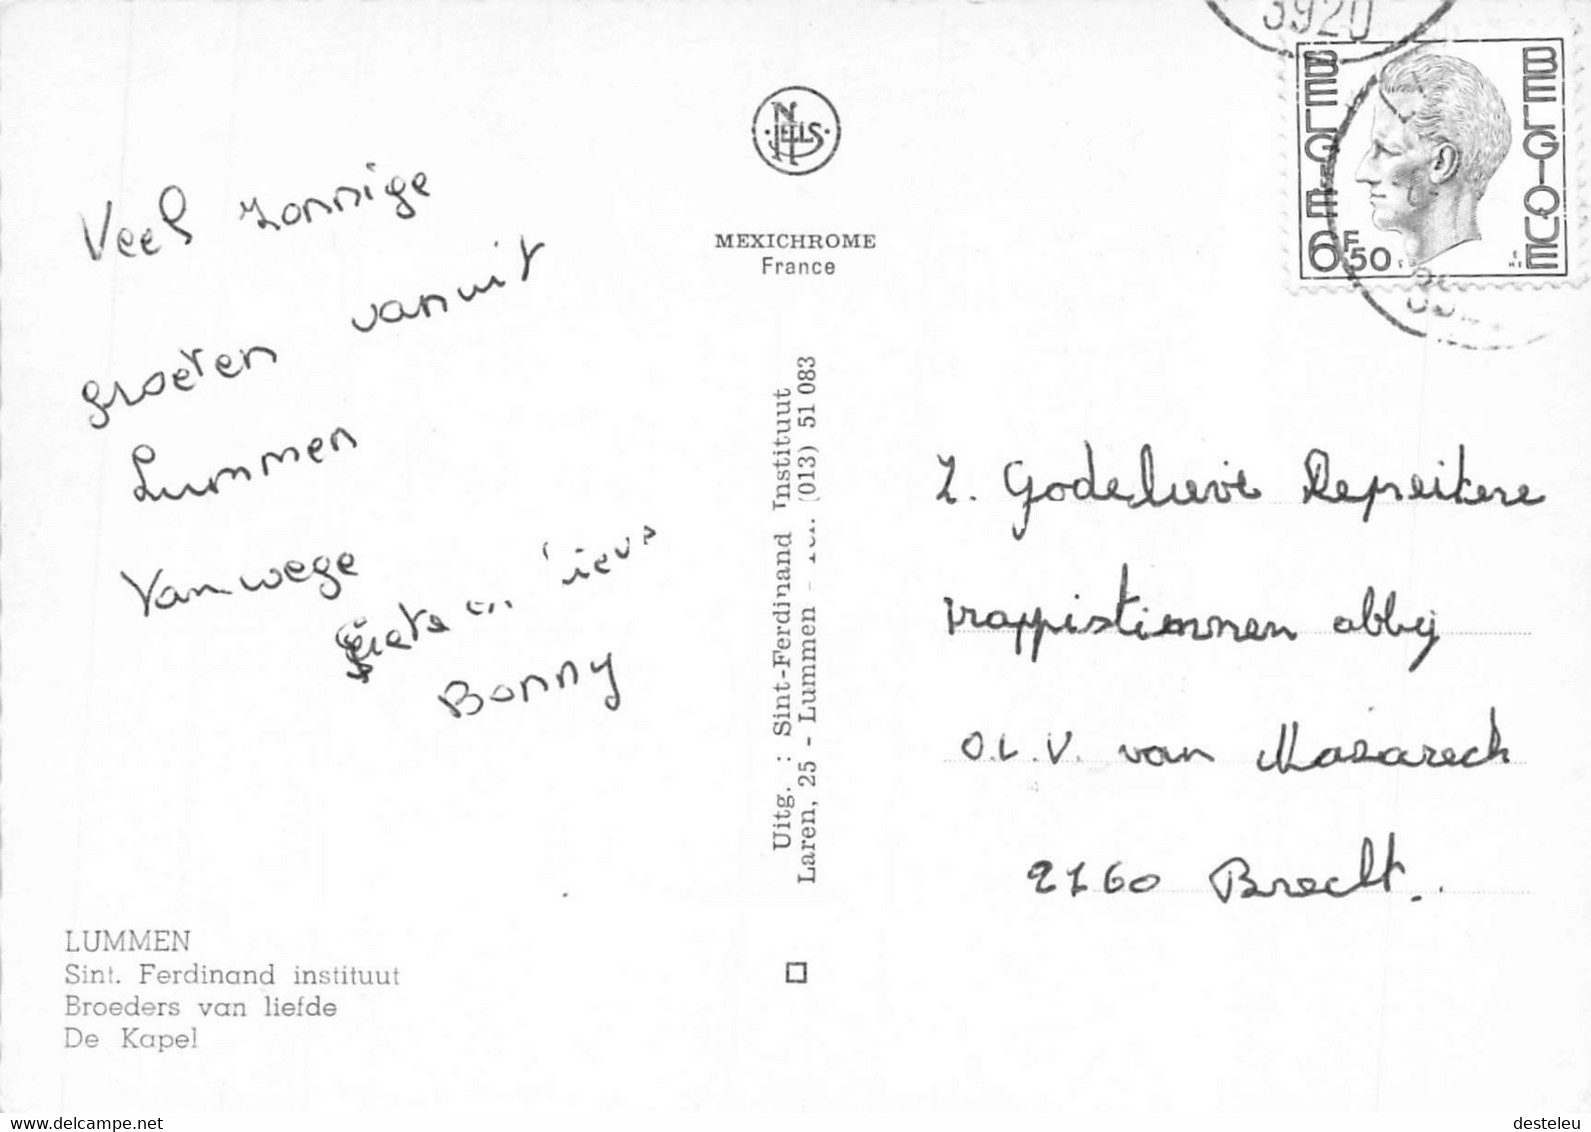 3920
BELGIE
BELGIQUE
6F50
NELS
MEXICHROME
France
Veel zonnige
groeten vanuit
Lummen
Vanwege
Bonny
Uitg. : Sint-Ferdinand Instituut
Laren, 25 - Lummen - Tel. (013) 51 083
Z. Godelieve Depreitere
trappistinnen abdij
O.L.V. van Nazareth
2160 Brecht.
LUMMEN
Sint. Ferdinand instituut
Broeders van liefde
De Kapel
www.delcampe.net
desteleu